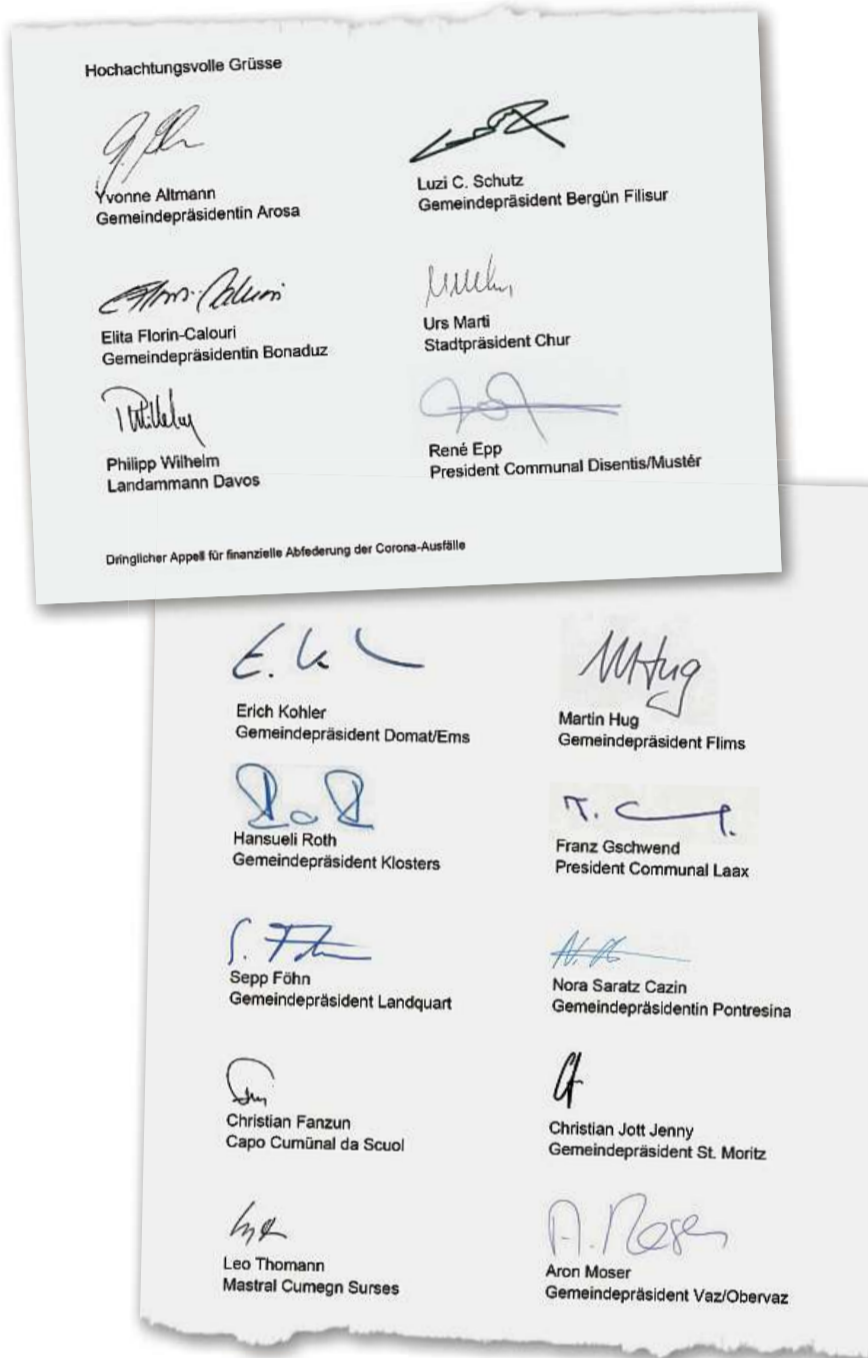 Hochachtungsvolle Grüsse
Yvonne Altmann
Gemeindepräsidentin Arosa
Luzi C. Schutz
Gemeindepräsident Bergün Filisur
Elita Florin-Calouri
Gemeindepräsidentin Bonaduz
Urs Marti
Stadtpräsident Chur
Philipp Wilhelm
Landammann Davos
René Epp
President Communal Disentis/Mustér
Dringlicher Appell für finanzielle Abfederung der Corona-Ausfälle
Erich Kohler
Gemeindepräsident Domat/Ems
MHug
Martin Hug
Gemeindepräsident Flims
Hansueli Roth
Gemeindepräsident Klosters
Franz Gschwend
President Communal Laax
Sepp Föhn
Gemeindepräsident Landquart
Nora Saratz Cazin
Gemeindepräsidentin Pontresina
Christian Fanzun
Capo Cumünal da Scuol
Christian Jott Jenny
Gemeindepräsident St. Moritz
Leo Thomann
Mastral Cumegn Surses
A. Moser
Aron Moser
Gemeindepräsident Vaz/Obervaz